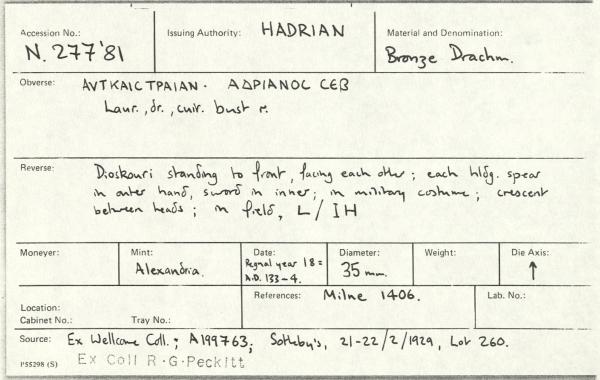 Accession No.:
N. 277'81
Issuing Authority: HADRIAN
Material and Denomination:
Bronze Drachm.
Obverse: ΑΥΤΚΑΙϹΤΡΑΙΑΝ· ΑΔΡΙΑΝΟϹ ϹΕΒ
Laur., dr., cuir. bust r.
Reverse: Dioskouri standing to front, facing each other; each hldg. spear
in outer hand, sword in inner; in military costume; crescent
between heads; in field, L/IH
Moneyer:
Mint:
Alexandria.
Date:
Regnal year 18 =
A.D. 133-4.
Diameter:
35 mm.
Weight:
Die Axis:
↑
Location:
Cabinet No.: Tray No.:
References: Milne 1406.
Lab. No.:
Source: Ex Wellcome Coll.; A199763; Sotheby's, 21-22/2/1929, Lot 260.
P55298 (S) Ex Coll R.G.Peckitt